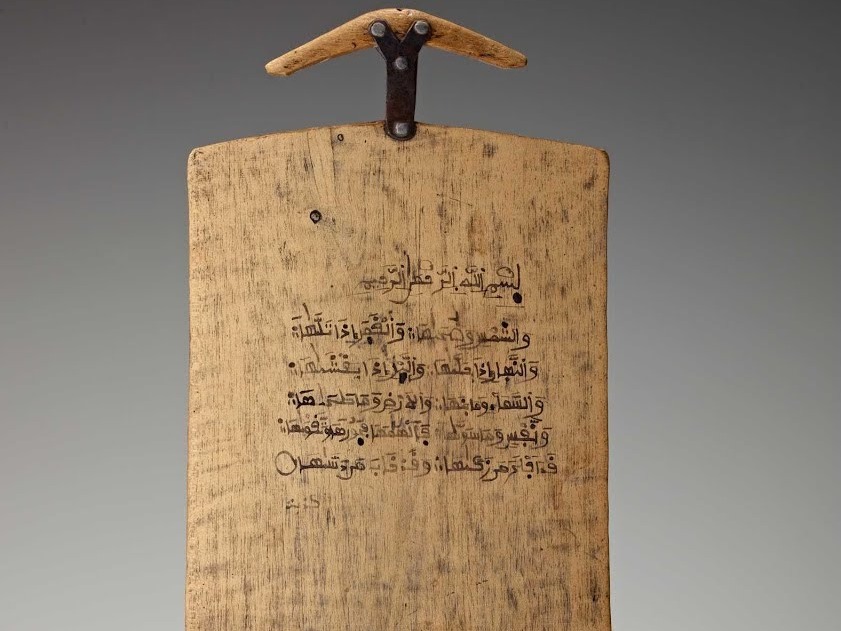 بِسْمِ اللَّهِ الرَّحْمَٰنِ الرَّحِيمِ
وَالشَّمْسِ وَضُحَىٰهَا وَالْقَمَرِ إِذَا تَلَىٰهَا
وَالنَّهَارِ إِذَا جَلَّىٰهَا وَالَّيْلِ إِذَا يَغْشَىٰهَا
وَالسَّمَاءِ وَمَا بَنَىٰهَا وَالْأَرْضِ وَمَا طَحَىٰهَا
وَنَفْسٍ وَمَا سَوَّىٰهَا فَأَلْهَمَهَا فُجُورَهَا وَتَقْوَىٰهَا
قَدْ أَفْلَحَ مَنْ زَكَّىٰهَا وَقَدْ خَابَ مَنْ دَسَّىٰهَا
كذبت